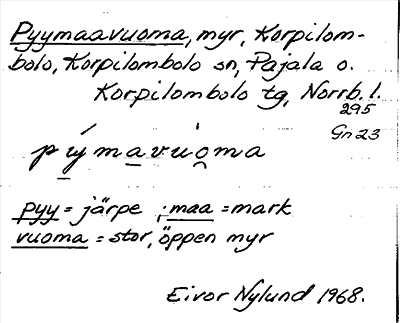 Pyymaavuoma, myr, Korpilom-
bolo, Korpilombolo sn, Pajala o.
Korpilombolo tg, Norrb. l.
295
Gn 23
pýmavuoma
pyy = järpe ; maa = mark
vuoma = stor, öppen myr
Eivor Nylund 1968.